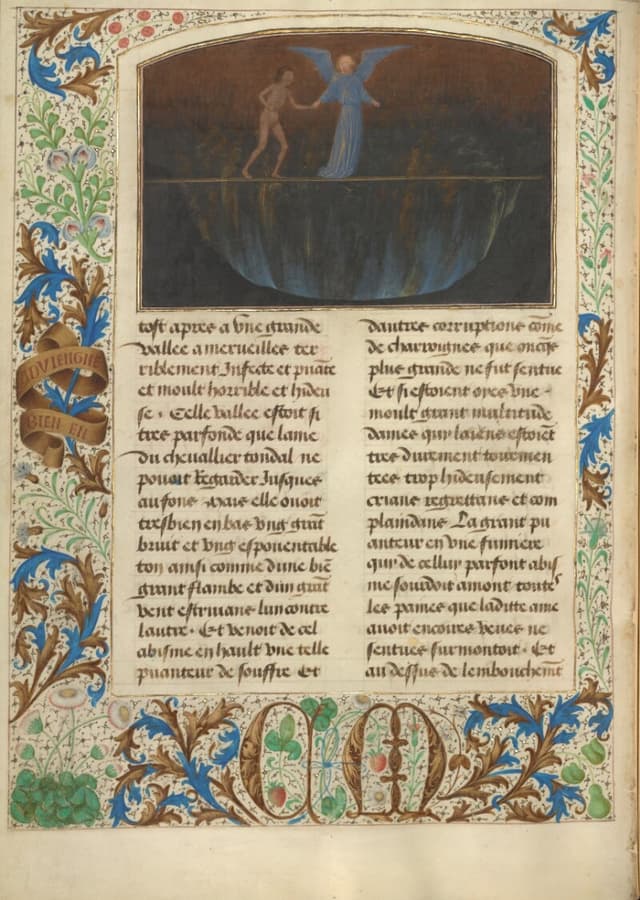 ADVIENGNE
BIEN EN
tost apres a vne grande
vallee a merueilles ter
riblement Infecte et puāte
et moult horrible et hideu
se · Celle vallee estoit si
tres parfonde que lame
du cheuallier tondal ne
pouoit Regarder Jusques
au fons Mais elle ouoit
tresbien en bas vng grāt
bruit et vng espouentable
ton ainsi comme dune biē
grant flambe et dun grāt
vent estriuans lun contre
lautre · Et venoit de cel
abisme en hault vne telle
puanteur de souffre Et
dautres corruptions cōme
de charroignes que oncqs
plus grande ne fut sentue
Et si estoient oyes vne
moult grant multitude
dames qui laiens estoiēt
tres durement tourmen
tees trop hideusement
crians regrettans et com
plaindans La grant pu
anteur en vne fumiere
qui de cellui parfont abis
me sourdoit amont toutes
les paines que laditte ame
auoit encores veues ne
sentues surmontoit · Et
au dessus de lembouchemt
C M